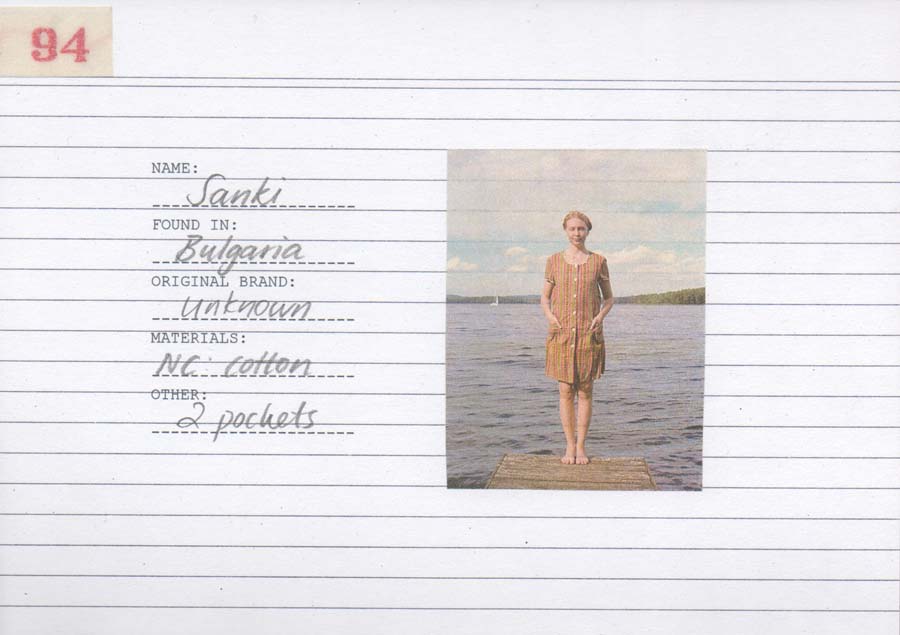 94
NAME:
Sanki
FOUND IN:
Bulgaria
ORIGINAL BRAND:
Unknown
MATERIALS:
NC: cotton
OTHER:
2 pockets